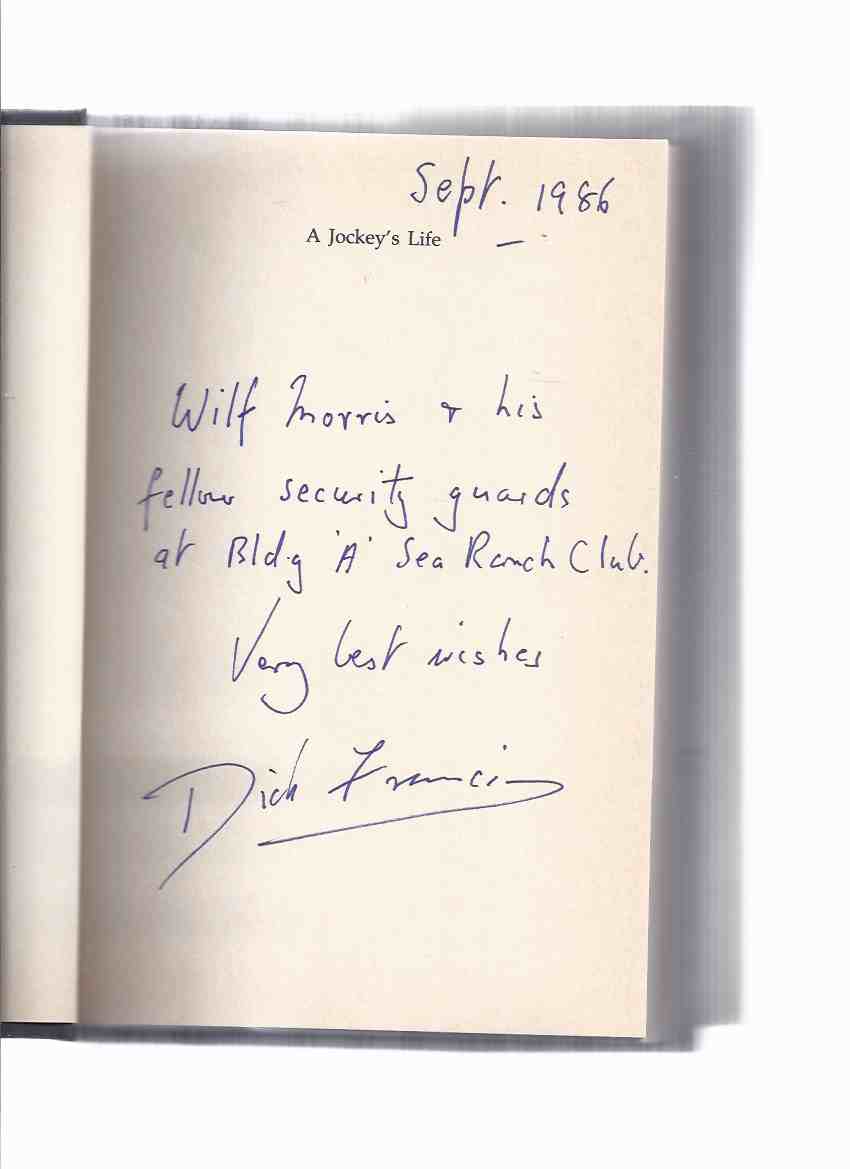 Sept. 1986
A Jockey's Life
Wilf Morris & his
fellow security guards
at Bldg 'A' Sea Ranch Club.
Very best wishes
Dick Francis